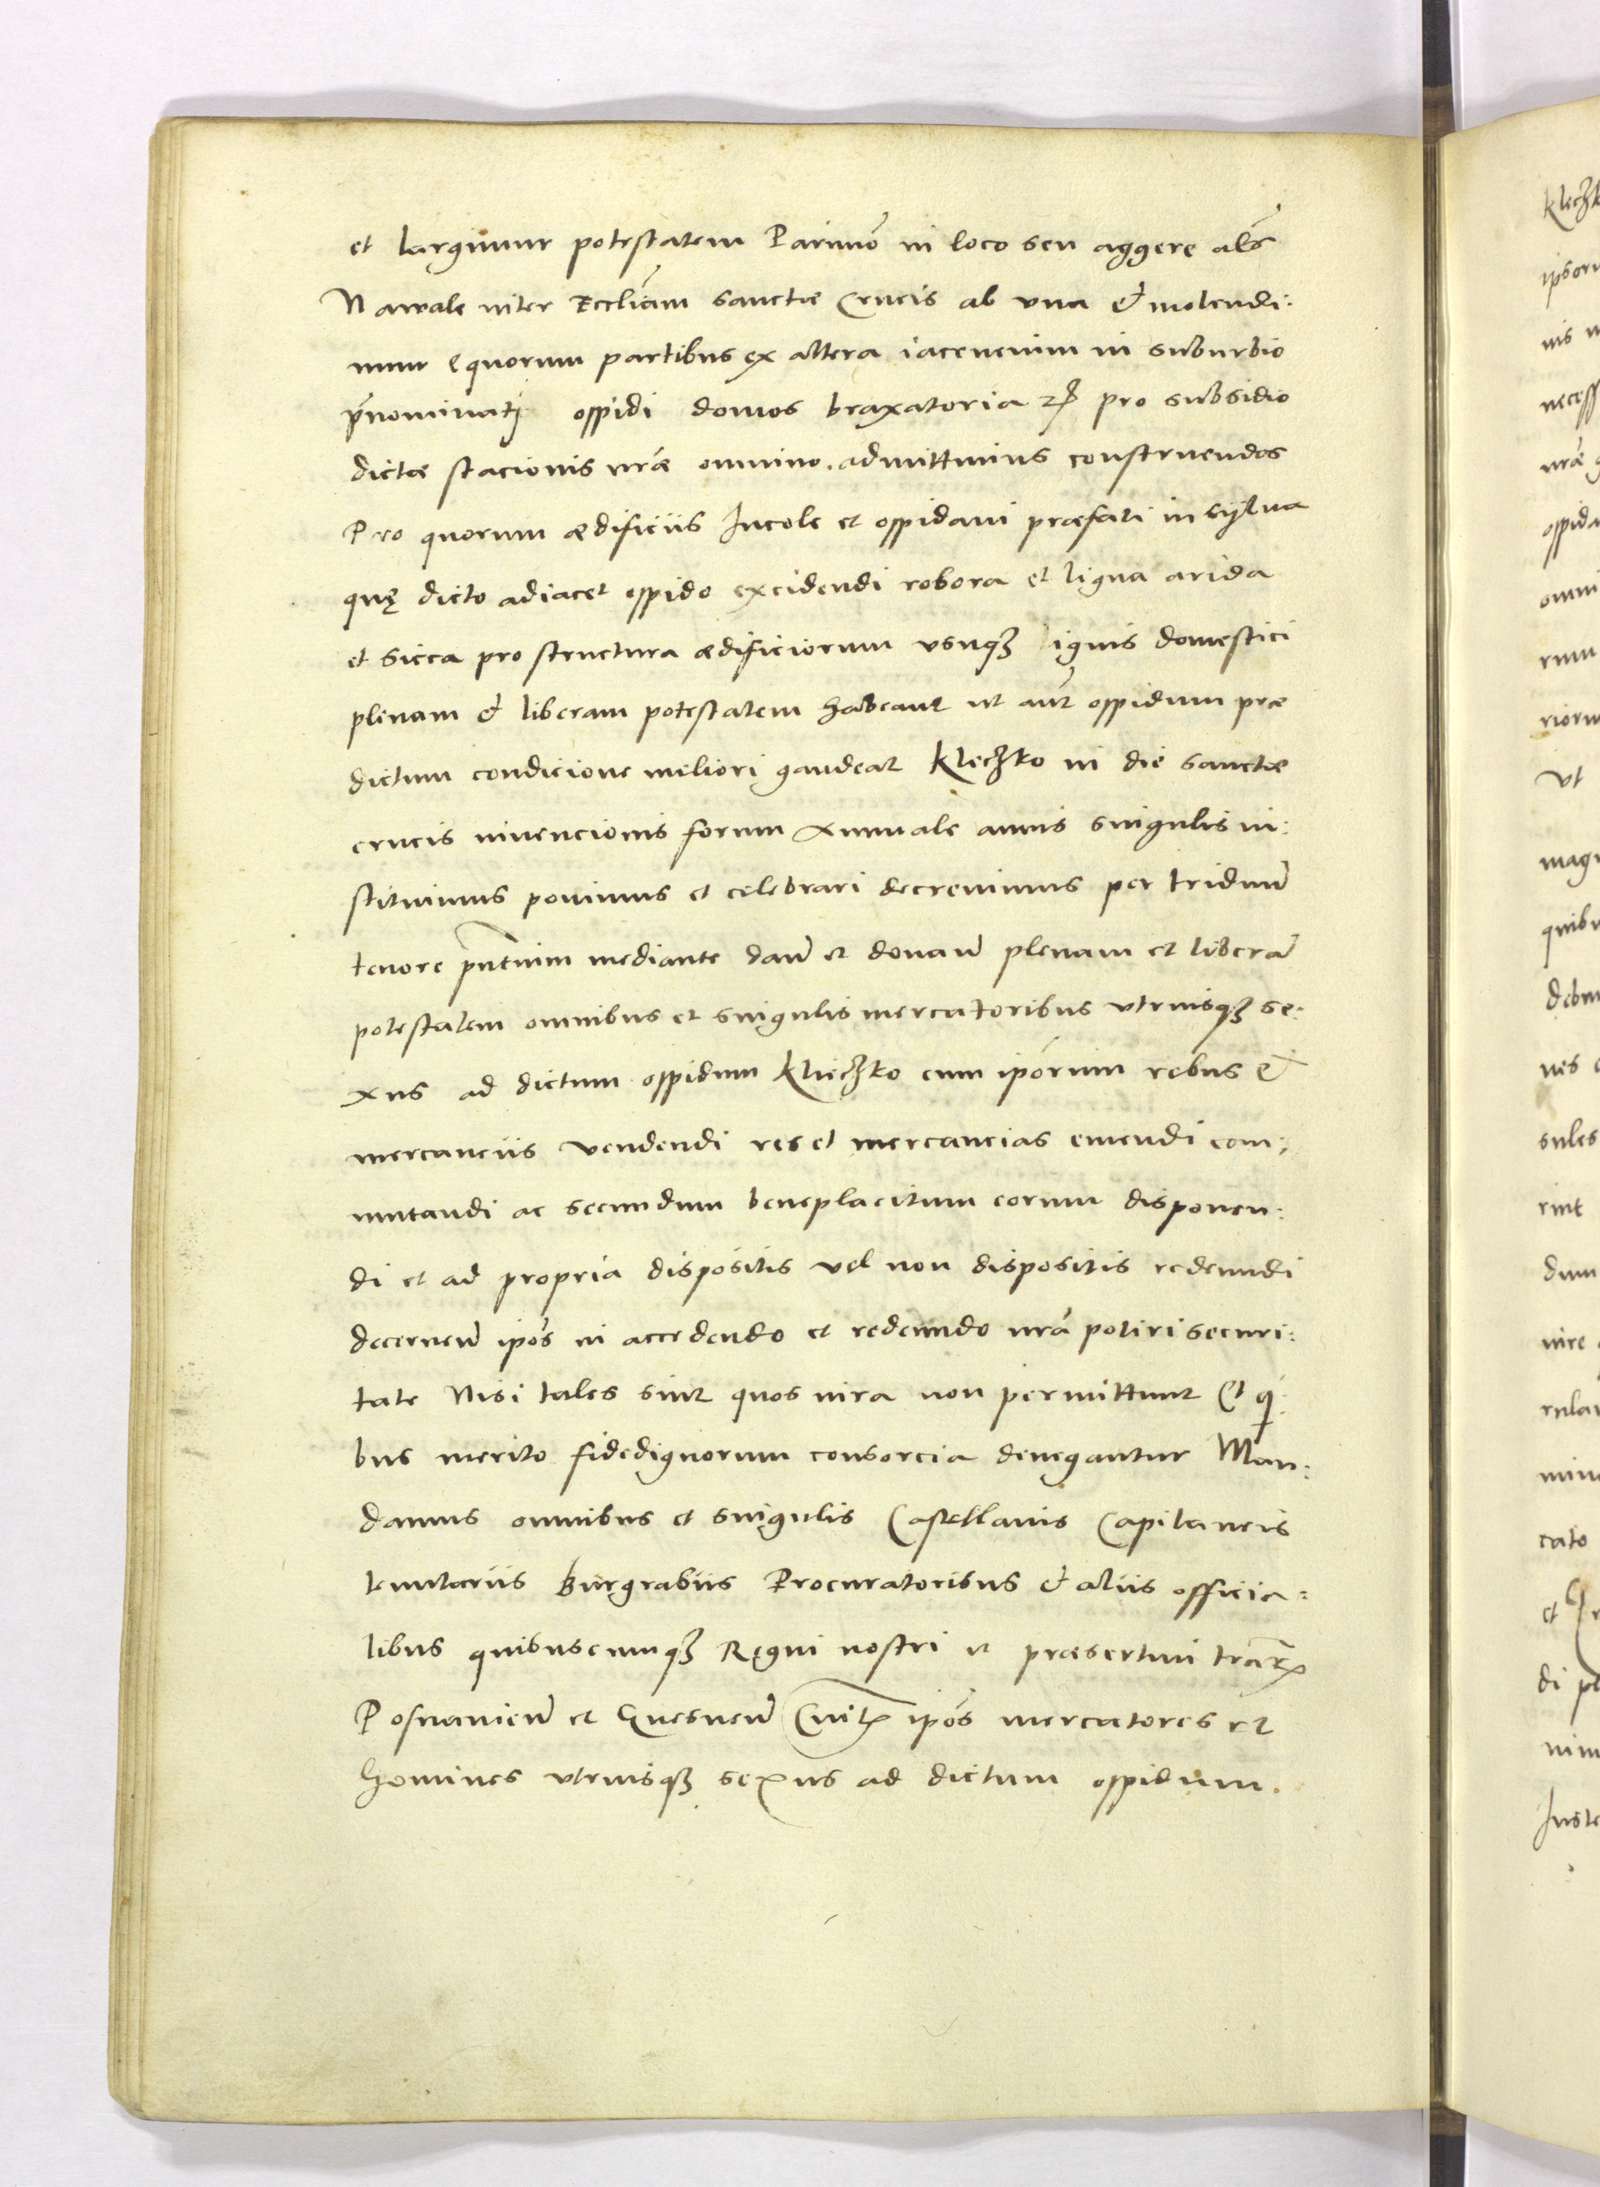 et largimur potestatem Parimō in loco seu aggere als̄
Nawale inter Eccliam̄ sanctæ Crucis ab vna & molendi:
num equorum partibus ex altera iacencium in suburbio
p̄nominatj oppidi domos braxatoria pro subsidio
dictæ stacionis nr̄æ omnino admittimus construendos
Pro quorum ædificiis Incole et oppidani præfati in sijlua
quę dicto adiacet oppido excidendi robora et ligna arida
et sicca pro structura ædificiorum vsuqȝ ignis domestici
plenam & liberam potestatem habeant ut aut̄ oppidum præ
dictum condicione meliori gaudeat Kleczko in die sanctæ
crucis invencionis forum Annuale annis singulis in:
stituimus ponimus et celebrari decrevimus per triduum̄
tenore pn̄tium mediante dan̄ et donan̄ plenam et liberā
potestatem omnibus et singulis mercatoribus vtriusqȝ se:
xus ad dictum oppidum Kleczko cum ip̄orum rebus &
mercanciis vendendi res et mercancias emendi com:
mutandi ac secundum beneplacitum eorum disponen:
di et ad propria dispositis vel non dispositis redeundi
decernen̄ ip̄os in accedendo et redeundo nr̄a potiri securi:
tate Nisi tales sint quos iura non permittunt Et q̄
bus merito fidedignorum consorcia denegantur Man:
damus omnibus et singulis Castellanis Capitaneis
tenutariis Burgrabiis Procuratoribus & aliis officia:
libus quibuscumqȝ Regni nostri et præsertim trār̄
Posnanien̄ et Gnesnen̄ Civit ip̄os mercatores et
homines vtriusqȝ sexus ad dictum oppidum.
Kleczk
ipsoru
nis
necess
nr̄æ
oppida
omni
rum
rioru
Vt
magi
quibu
debu
nes
sules
rint
dum
nire
rula
cato
et
di p
Juste